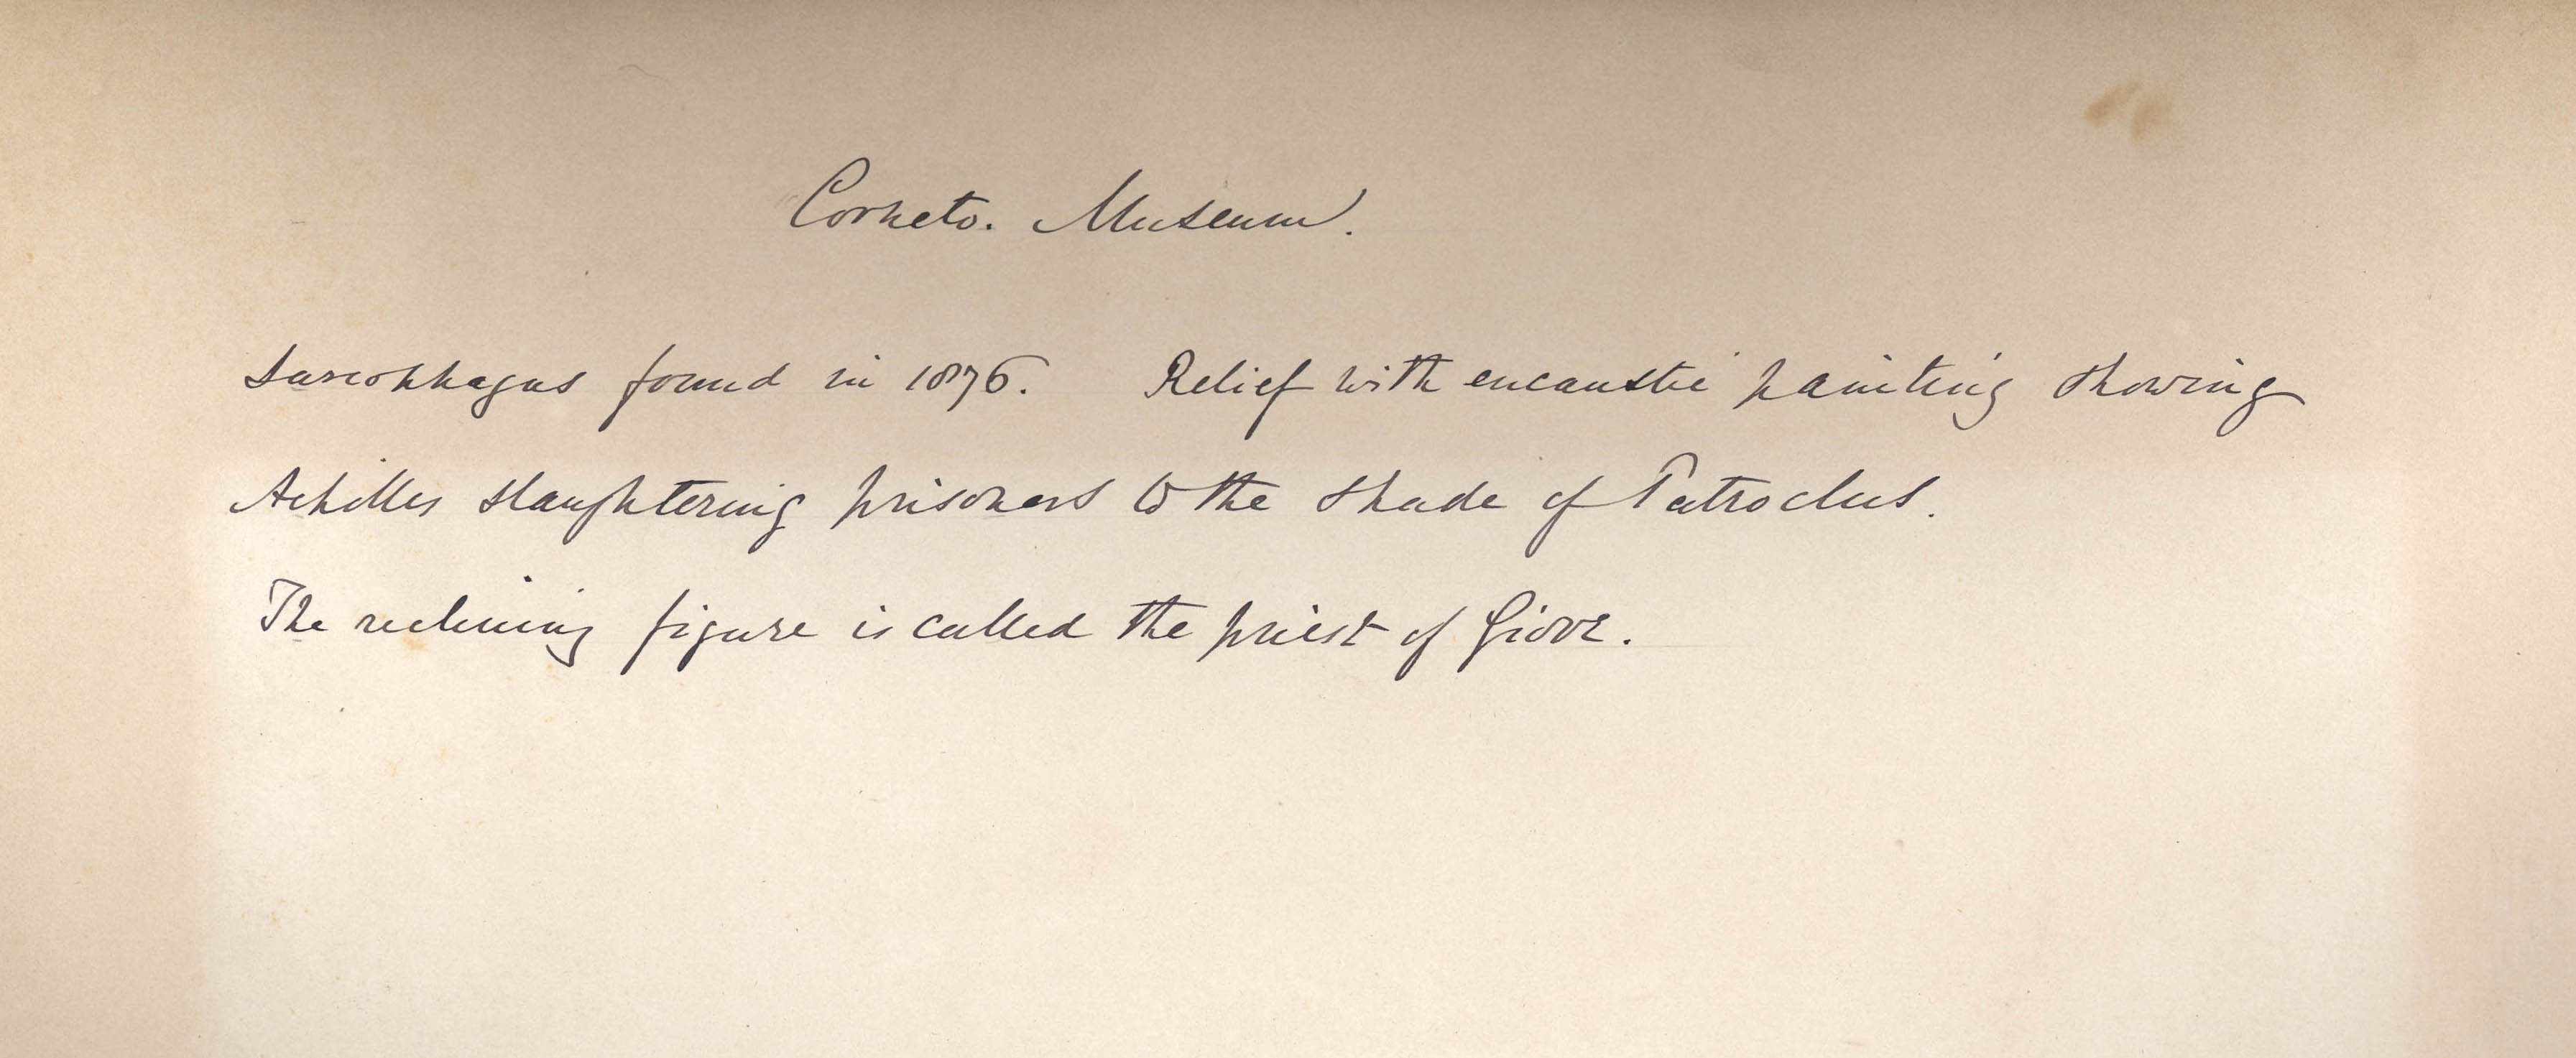 Corneto. Museum.
Sarcophagus found in 1876. Relief with encaustic painting showing
Achilles slaughtering prisoners to the shade of Patroclus.
The reclining figure is called the priest of Giove.